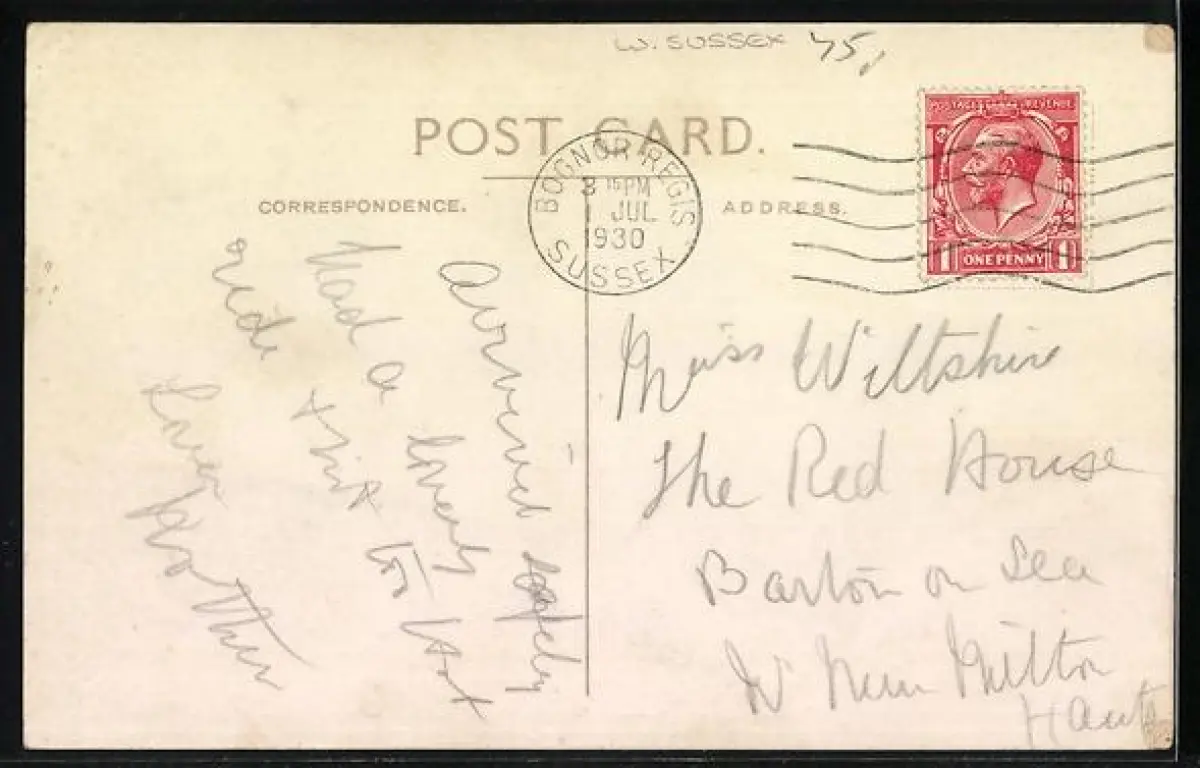 W. SUSSEX 75/
POST CARD.
CORRESPONDENCE.
ADDRESS.
BOGNOR REGIS
8 15 PM
JUL
1930
SUSSEX
POSTAGE REVENUE
1 ONE PENNY 1
Arrived safely
Had a lovely
ride & not too hot
Love
Miss Wiltshire
The Red House
Barton on Sea
Nr New Milton
Hants